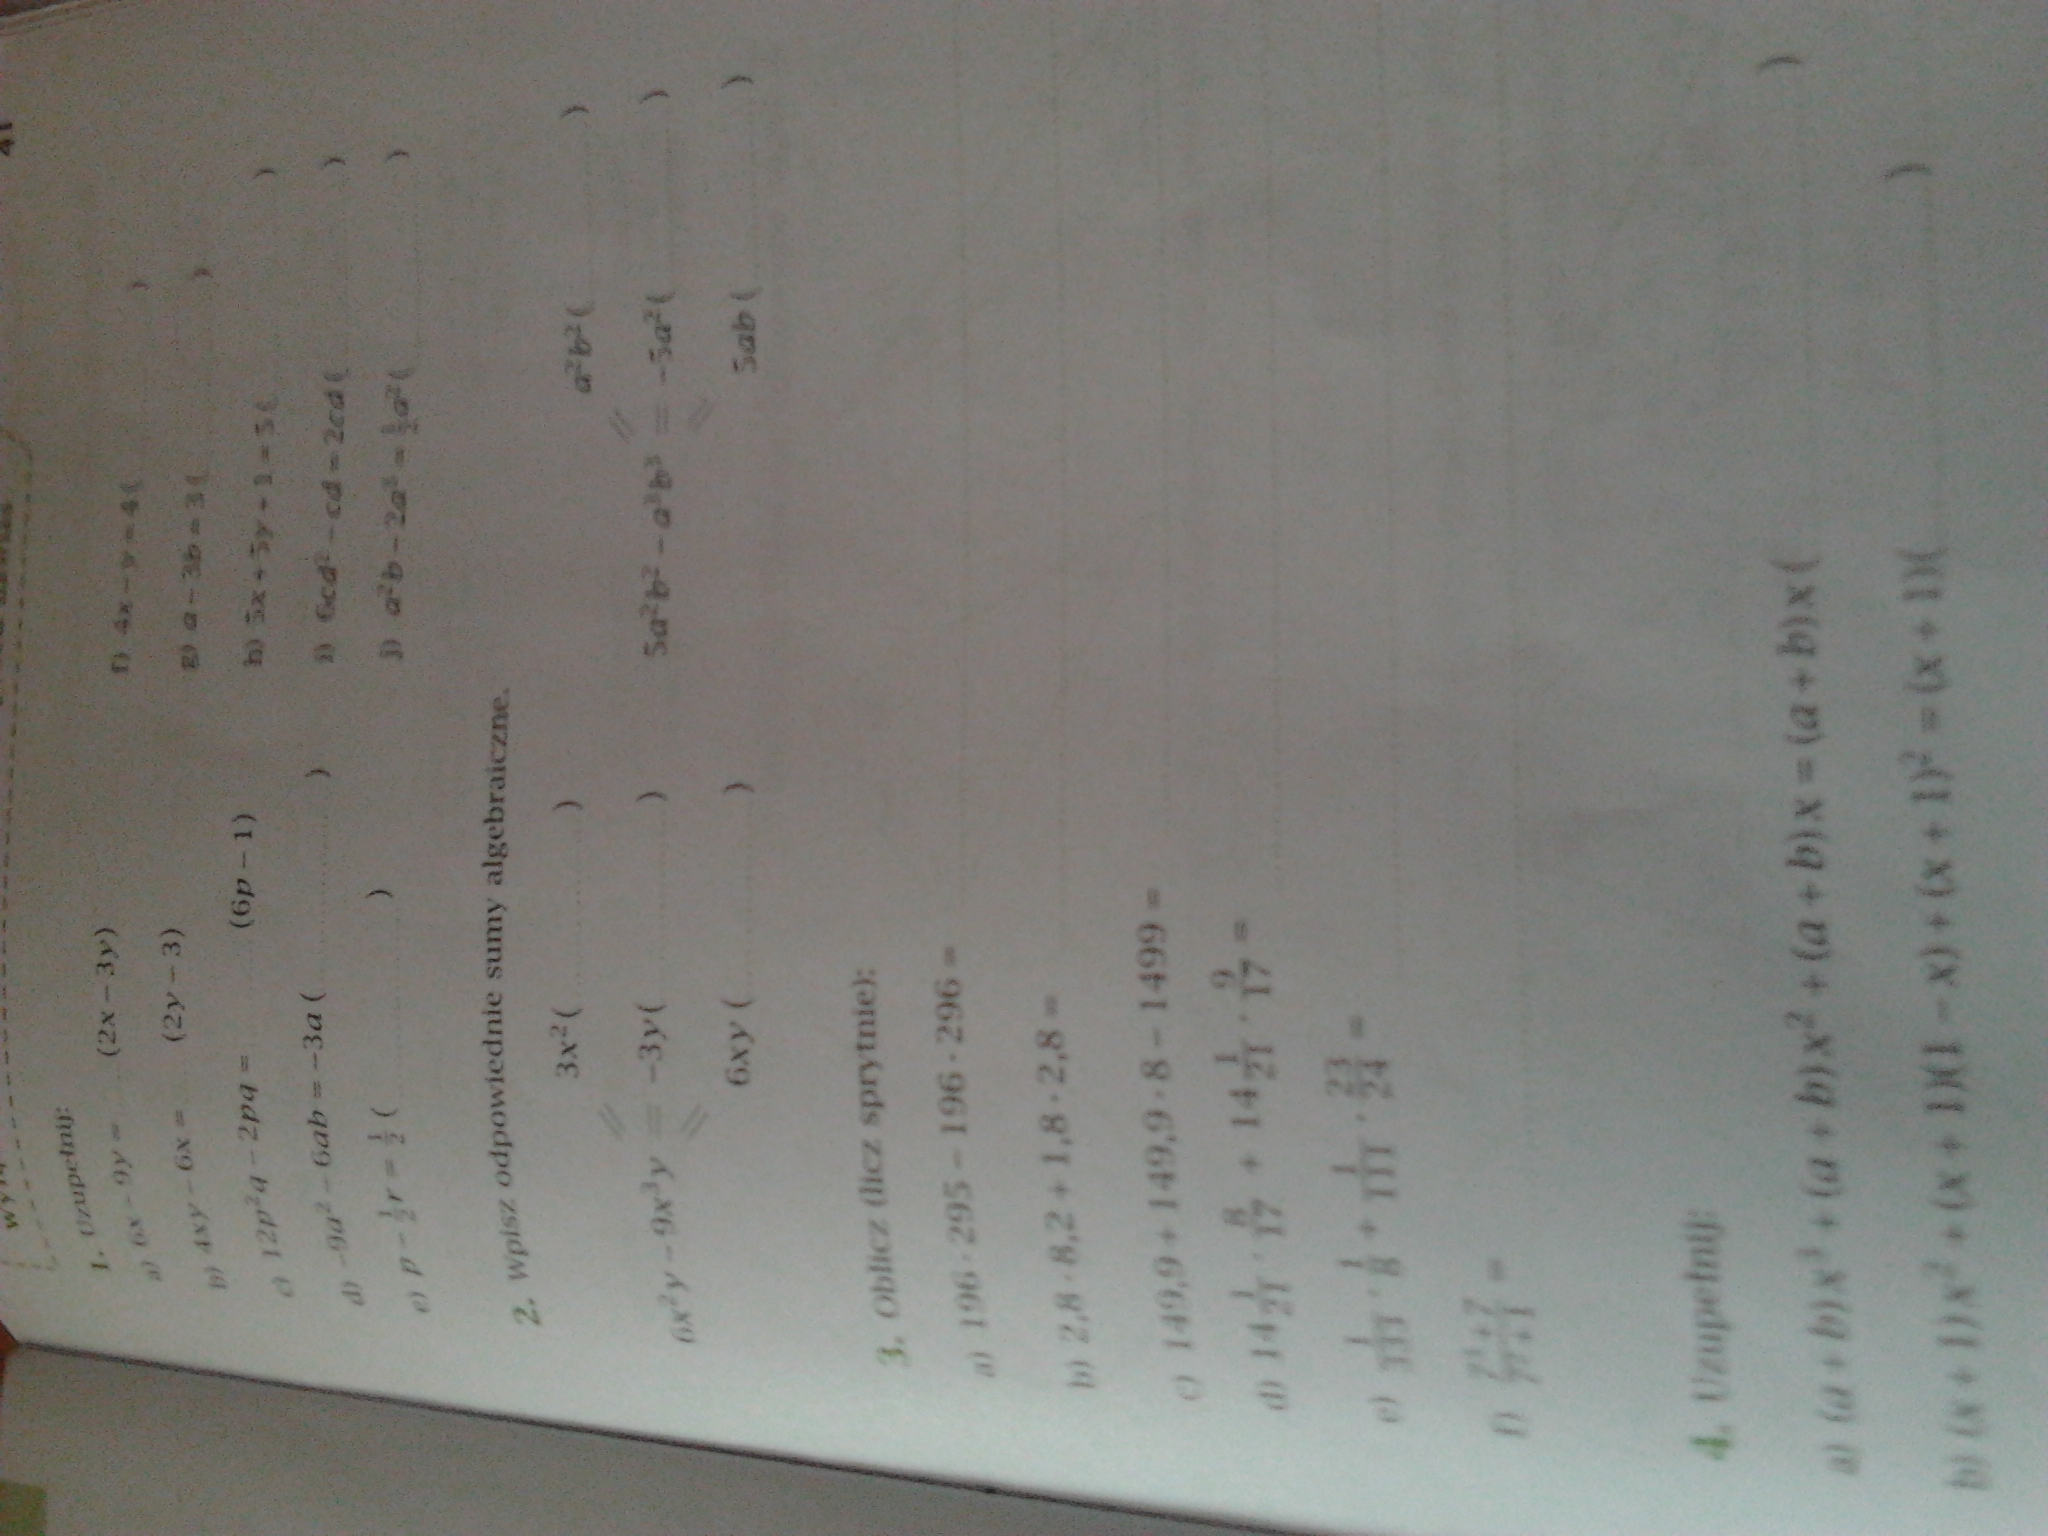 41
1. Uzupełnij:
a) 6x − 9y = ........ (2x − 3y)
b) 4xy − 6x = ........ (2y − 3)
c) 12p²q − 2pq = ........ (6p − 1)
d) −9a² − 6ab = −3a ( ........ )
e) p − ½r = ½ ( ........ )
f) 4x − y = 4( ........ )
g) a − 3b = 3( ........ )
h) 5x + 5y + 1 = 5( ........ )
i) 6cd² − cd = 2cd( ........ )
j) a²b − 2a³ = ½a²( ........ )
2. Wpisz odpowiednie sumy algebraiczne.
3x² ( ........ )
6x²y − 9x³y = −3y ( ........ )
6xy ( ........ )
a²b² ( ........ )
5a²b² − a³b³ = −5a² ( ........ )
5ab ( ........ )
3. Oblicz (licz sprytnie):
a) 196 · 295 − 196 · 296 =
b) 2,8 · 8,2 + 1,8 · 2,8 =
c) 149,9 + 149,9 · 8 − 1499 =
d) 14 1/21 · 8/17 + 14 1/21 · 9/17 =
e) 1/111 · 1/8 + 1/111 · 23/24 =
f)
4. Uzupełnij:
a) (a + b)x³ + (a + b)x² + (a + b)x = (a + b)x ( ........ )
b) (x + 1)x² + (x + 1)(1 − x) + (x + 1)² = (x + 1)( ........ )